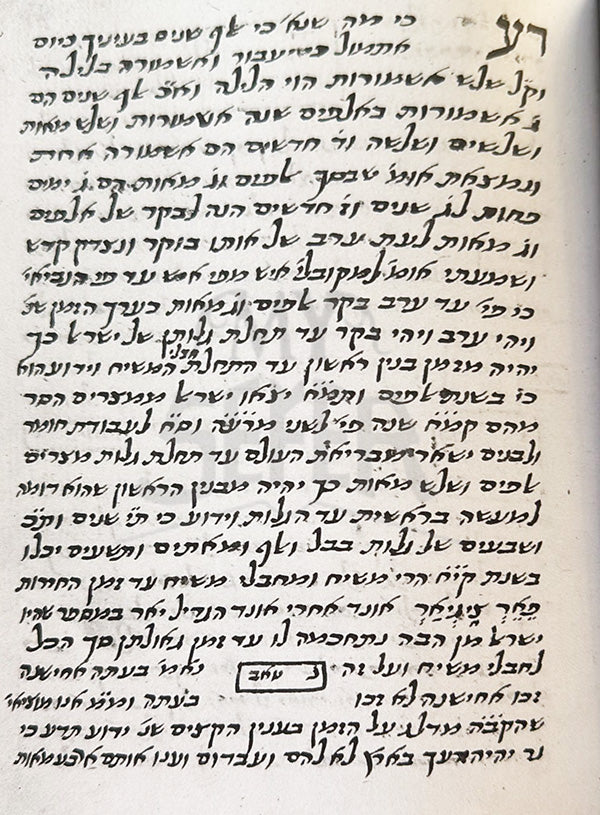 רע
כי מה שנא' כי אלף שנים בעיניך כיום
אתמול כי יעבור ואשמורה בלילה
וק"ל שלש אשמורות הוי הלילה וא"כ אלף שנים הם
ג' אשמורות באלפים שנה אשמורות ושלש מאות
ושלשים ושלשה וד' חדשים הם אשמורה אחת
ונמצאת אומ' שבסך אלפים וג' מאות הם ג' ימים
פחות לג' שנים וד' חדשים הנה לבקר של אלפים
וג' מאות לעת ערב של אותו בוקר ונצדק קדש
ושמעתי אומ' למקובלי איש מפי איש עד פי הנביאי'
כי פי' עד ערב בקר אלפים וג' מאות כערך הזמן של
ויהי ערב ויהי בקר עד תחלת גלותן של ישראל כך
יהיה מזמן בנין ראשון עד התחלת חבלי המשיח וידוע הוא
כי בשנת אלפים ותמ"ח יצאו ישראל ממצרים הסר
מהם קמ"ח שנה פי' לשני
לעבודת חומר
ולבנים ישאר מבריאת העולם עד תחלת גלות מצרים
אלפים ושלש מאות כך יהיה מבנין הראשון שהוא דומה
למעשה בראשית עד הגלות וידוע כי ת"י שנים
ושבעים של גלות בבל ואלף ומאתים ותשעים יכלו
בשנת
הרי משיח ומחבלי משיח עד זמן החירות
אונד אחרי אונד הגדיל יאר במספר שהיו
ישראל מן הבה נתחכמה לו עד זמן גאולתן סך הכל
לחבלי משיח ועל זה
נאמ' בעתה אחישנה
זכו אחישנה לא זכו
בעתה ומ"מ אנו מוציאי'
שהקב"ה מדלג על הזמן בענין הקצים שנ' ידוע תדע כי
גר יהיה זרעך בארץ לא להם ועבדום וענו אותם ארבע מאות